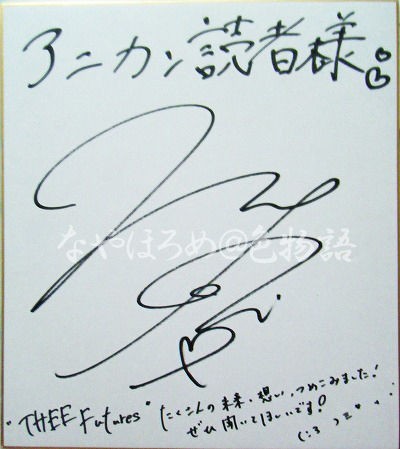 アニカン読者様
なやほろめ@色物語
"THEE Futures"
たくさんの未来、想い、つめこみました!
ぜひ聞いてほしいです!